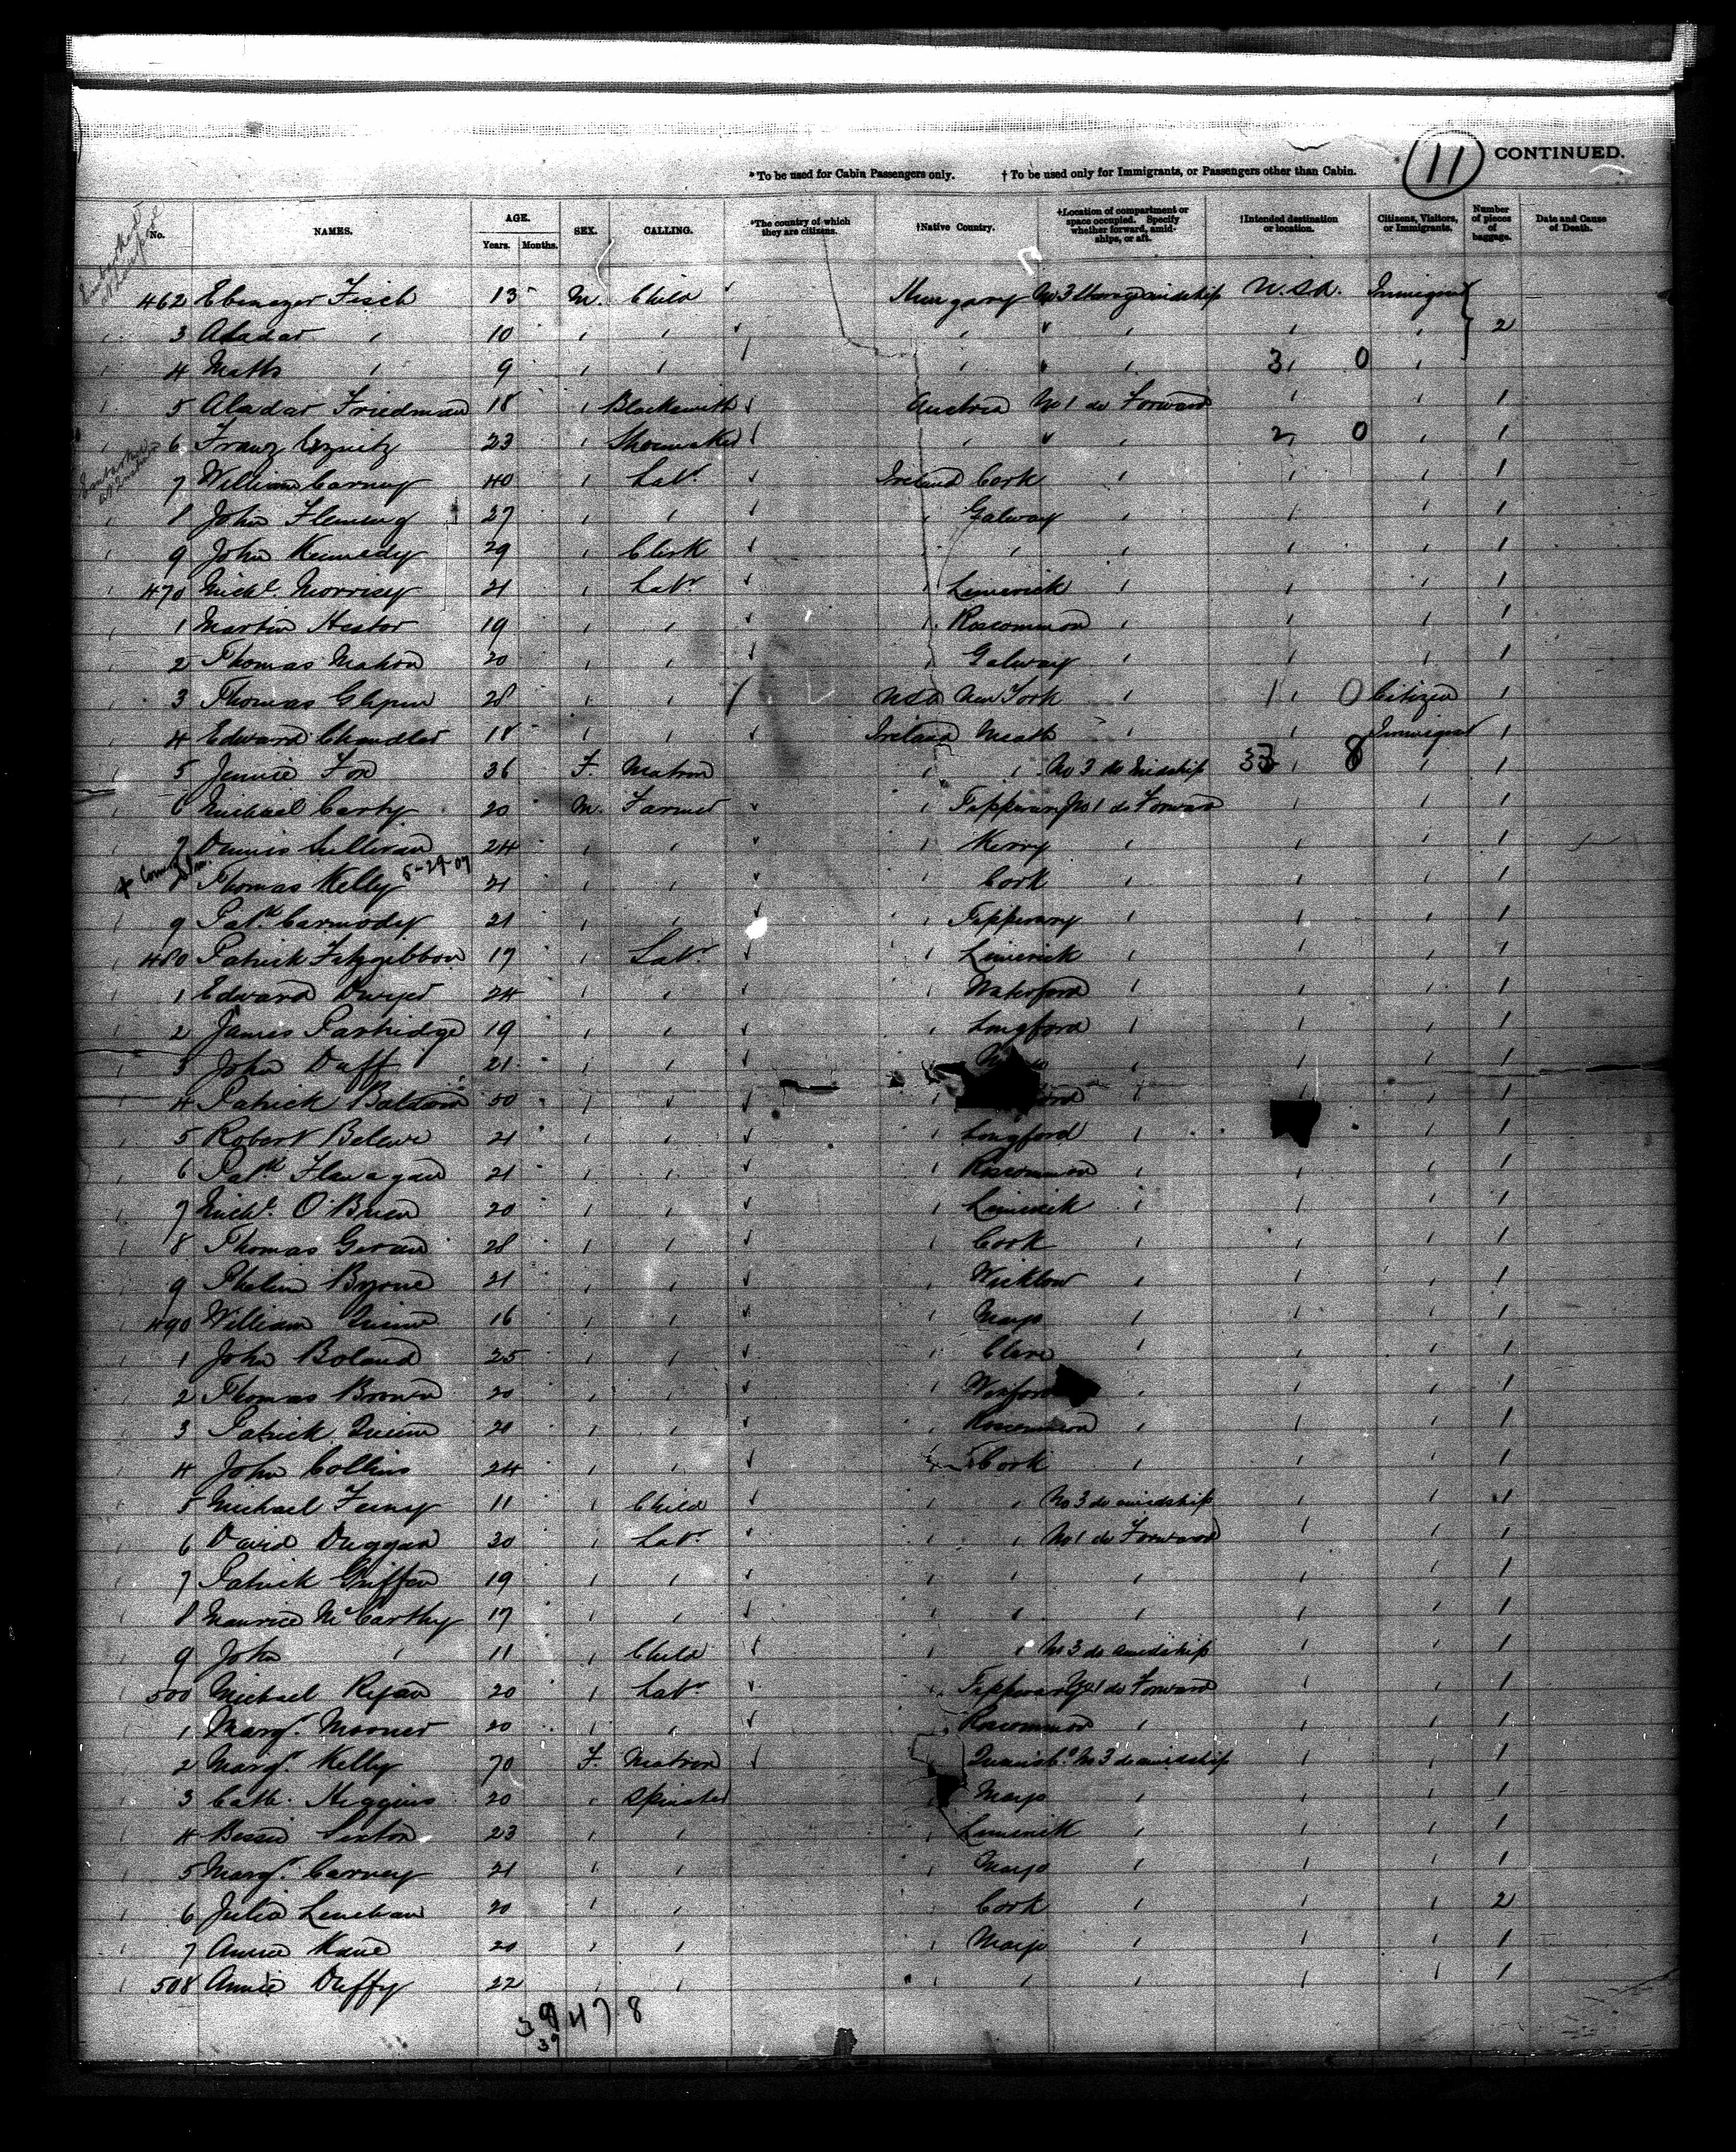 11 CONTINUED.
*To be used for Cabin Passengers only. † To be used only for Immigrants, or Passengers other than Cabin.
No. NAMES. AGE. Years. Months. SEX. CALLING. *The country of which they are citizens. †Native Country. †Location of compartment or space occupied. Specify whether forward, amidships, or aft. †Intended destination or location. Citizens, Visitors, or Immigrants. Number of pieces of baggage. Date and Cause of Death.
462 Ebenezer Fisch 13 M. Child Hungary No 3 amidship U.S.A. Immigrant
3 Aladar " 10 " " " " " " " 2
4 " 9 " " " " " 3 0 "
5 Aladar Friedman 18 " Blacksmith Austria No 1 do Forward " " 1
6 Franz 23 " Shoemaker " " " 2 0 " 1
7 William Carney 40 " Labr Ireland Cork " " " 1
8 John Fleming 27 " " " Galway " " " 1
9 John Kennedy 29 " Clerk " " " " " 1
470 Michl. Morrisey 21 " Labr " Limerick " " " 1
1 Martin Hestor 19 " " " Roscommon " " " 1
2 Thomas Mahon 20 " " " Galway " " " 1
3 Thomas 28 " " USA New York " 1 0 Citizen 1
4 Edward Chandler 18 " " Ireland Meath " " Immigrant 1
5 Jennie Fox 36 F. Matron " " No 3 do Midship 8 " 1
6 Michael Carty 20 M. Farmer " Tipperary No 1 do Forward " " 1
7 Dennis Sullivan 24 " " " Kerry " " " 1
Thomas Kelly 5-29-07 21 " " " Cork " " " 1
9 Patk Carmody 21 " " " Tipperary " " " 1
480 Patrick Fitzgibbon 19 " Labr " Limerick " " " 1
1 Edward Dwyer 24 " " " Waterford " " " 1
2 James Partridge 19 " " " Longford " " " 1
3 John Duff 21 " " " " " " 1
4 Patrick Baldwin 50 " " " " " 1
5 Robert 21 " " " Longford " " 1
6 Patk Flanagan 21 " " " Roscommon " " " 1
7 Michl. O'Brien 20 " " " Limerick " " " 1
8 Thomas Geran 28 " " " Cork " " " 1
9 Phelim Byrne 21 " " " Wicklow " " " 1
490 William Quinn 16 " " " Mayo " " " 1
1 John Boland 25 " " " Clare " " " 1
2 Thomas Brown 20 " " " Wexford " " " 1
3 Patrick Quinn 20 " " " Roscommon " " " 1
4 John Collins 24 " " " Cork " " " 1
5 Michael 11 " Child " " No 3 do amidship " " 1
6 David Duggan 30 " Labr " " No 1 do Forward " " 1
7 Patrick Griffen 19 " " " " " " " 1
8 Maurice McCarthy 17 " " " " " " " 1
9 John " 11 " Child " " No 3 do amidship " " 1
500 Michael Ryan 20 " Labr " Tipperary No 1 do Forward " " 1
1 Margt. 20 " " " Roscommon " " " 1
2 Margt. Kelly 70 F. Matron " No 3 do amidship " " 1
3 Cath. Higgins 20 " Spinster " Mayo " " " 1
4 Bessie Sexton 23 " " " Limerick " " " 1
5 Margt. Carney 21 " " " Mayo " " " 1
6 Julia Linehan 20 " " " Cork " " " 2
7 Annie Kane 20 " " " Mayo " " " 1
508 Annie Duffy 22 " " " " " " " 1
39 47 8
39